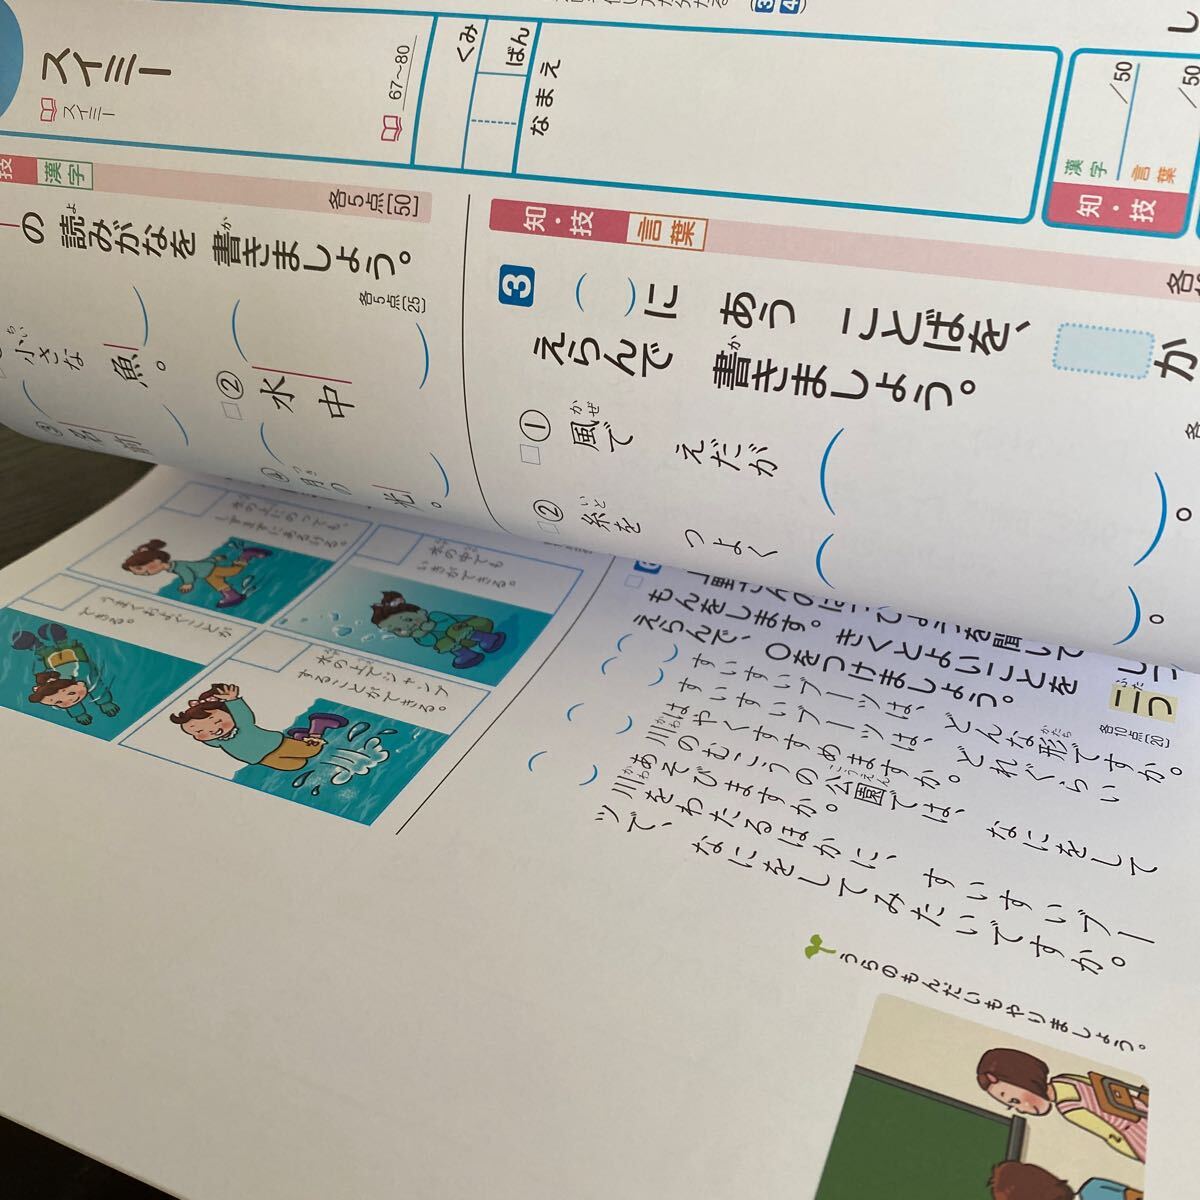 スイミー
スイミー
67〜80
くみ
ばん
なまえ
漢字
/50
言葉
/50
知・技
技
漢字
各5点[50]
の 読みがなを 書きましょう。
よ
か
各5点[25]
小さな 魚。
ちい
②
水中
③
名前
④
月の 光。
つき
知・技
言葉
3
( )に あう ことばを、
えらんで 書きましょう。
か
①
風で えだが
かぜ
。
②
糸を つよく
いと
。
か
水の上にのっても、
しずまずにあるける。
水の中でも
いきができる。
うまくおよぐことが
できる。
水の上でジャンプ
することができる。
もんをします。きくとよいことを 二つ
ふた
えらんで、○をつけましょう。
各10点[20]
すいすいブーツは、どんな形ですか。
かたち
すいすいブーツは、どれぐらい
はやくすすめますか。
川のむこうの公園では、なにをして
かわ
こうえん
あそびますか。
川をわたるほかに、すいすいブー
かわ
ツで、なにをしてみたいですか。
うらのもんだいもやりましょう。